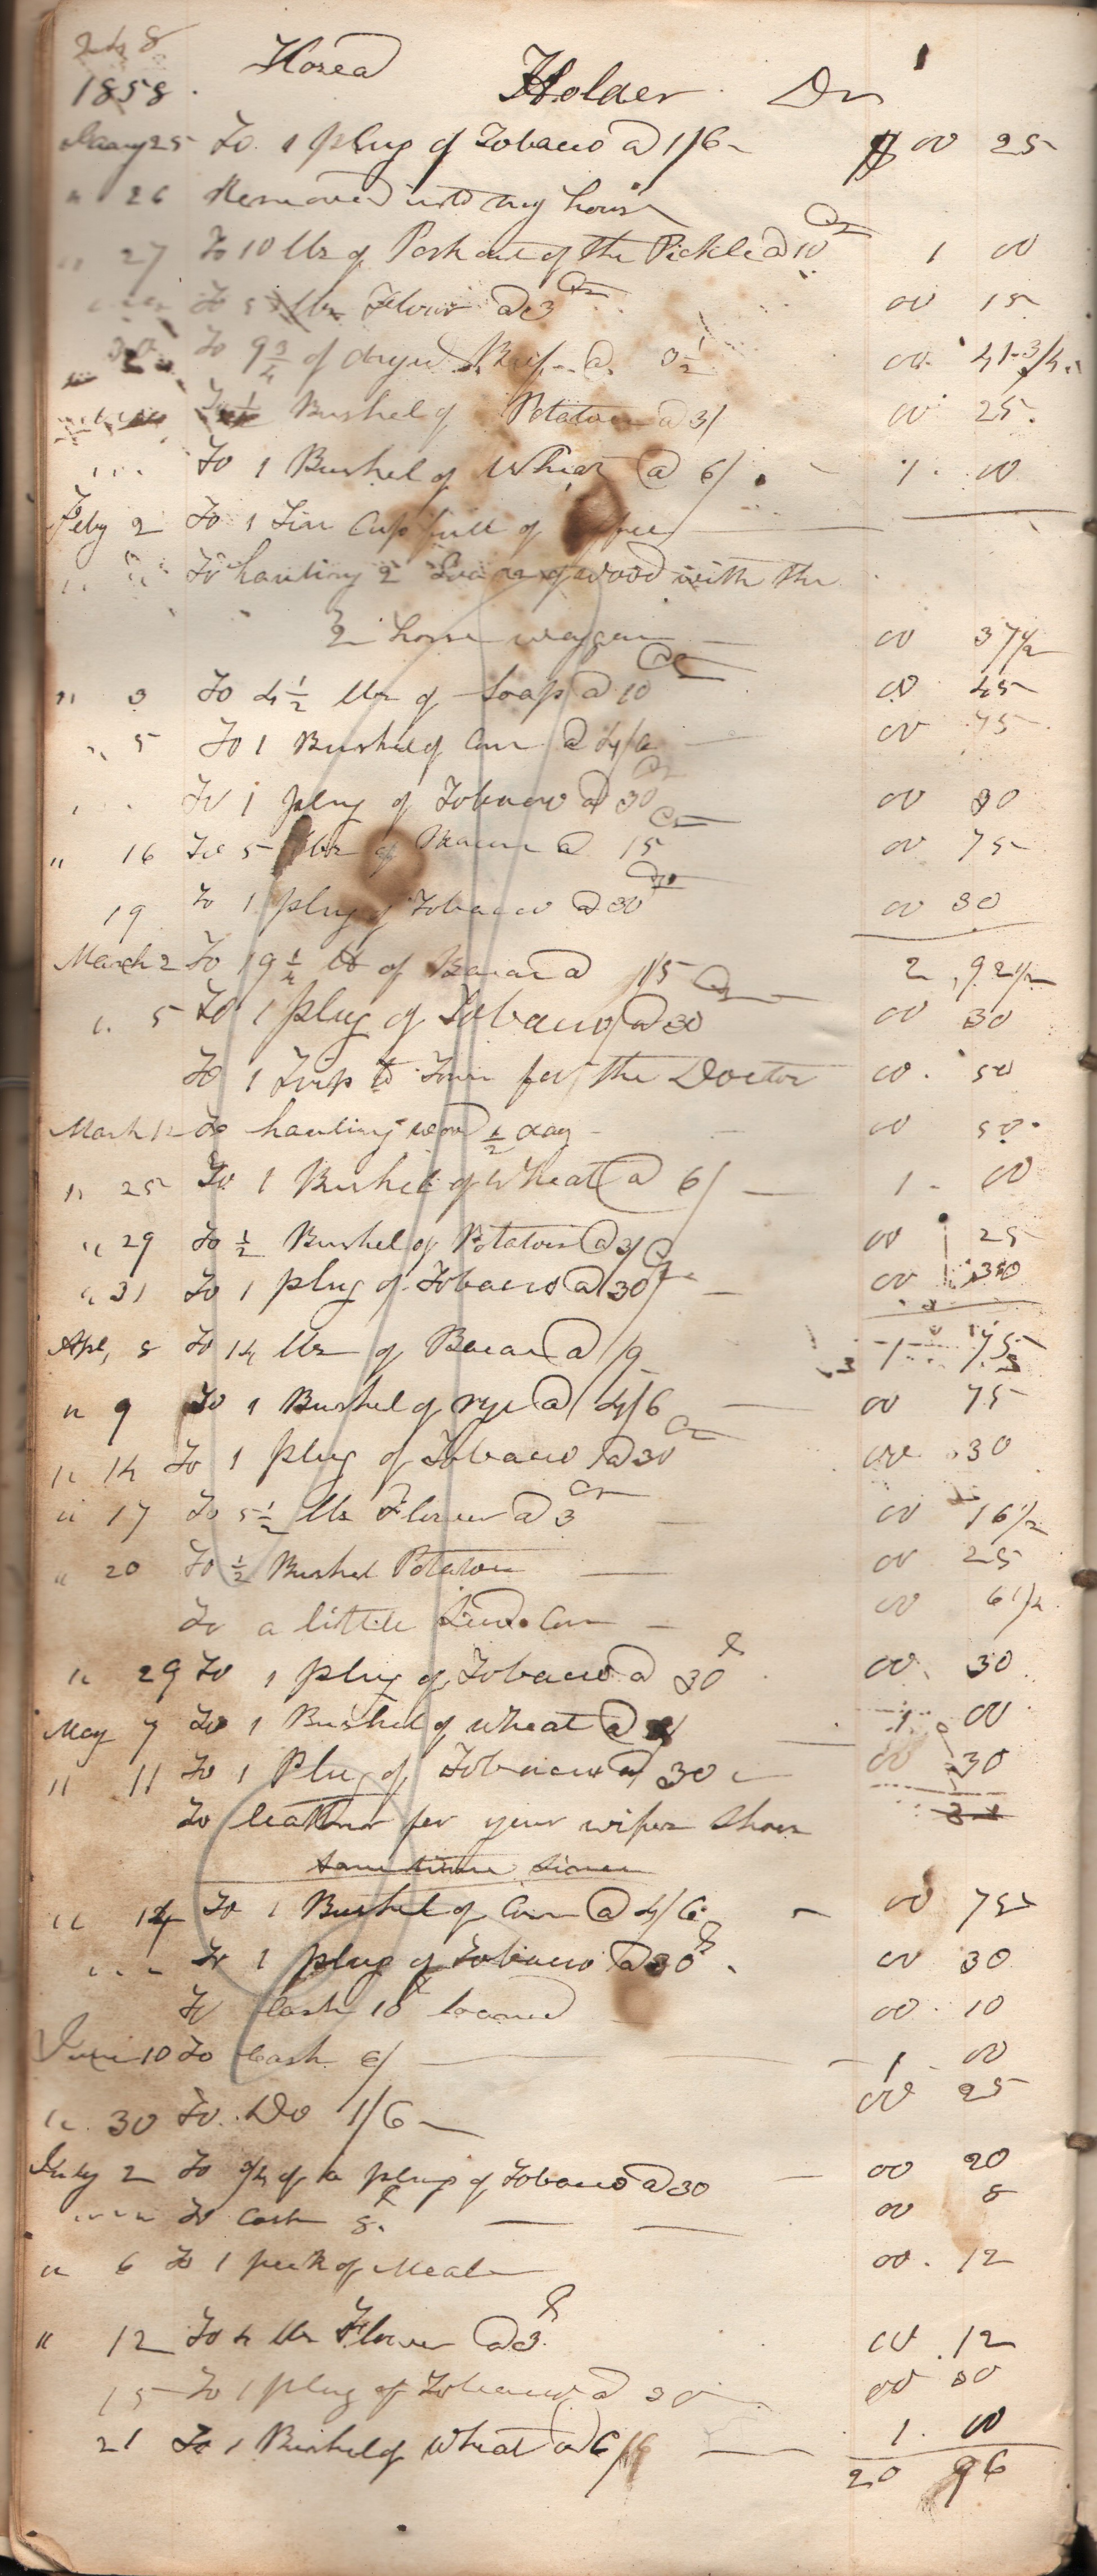 248
1858. Hosea Holder Dr 1
Janay 25 To 1 plug of Tobacco @ 1/6 $ 00 25
" 26 Removed into my house
" 27 To 10 lbs of Pork out of the Pickle @ 10 Cts 1 00
To 5 lbs Flour @ 3 Cts 00 15
30 To 9 3/4 of dryed Beef @ 3 1/2 00 41-3/4
To 1/2 Bushel of Potatoes @ 3/ 00 25
" " To 1 Bushel of Wheat @ 6/ 1 00
Feby 2 To 1 Tin Cup full of
" " To hauling 2 Loads of wood with the
2 horse waggon 00 37 1/2
" 3 To 4 1/2 lbs of Soap @ 10 Cts 00 45
" 5 To 1 Bushel of Corn @ 4/6 00 75
" " To 1 plug of Tobacco @ 30 Cts 00 30
" 16 To 5 lbs of Bacon @ 15 Cts 00 75
19 To 1 plug of Tobacco @ 30 Cts 00 30
March 2 To 19 1/4 lb of Bacon @ 15 Cts 2 92 1/2
" 5 To 1 plug of Tobacco @ 30 00 30
To 1 Trip to Town for the Doctor 00 50
March 12 To hauling wood 1/2 day 00 50
" 25 To 1 Bushel of Wheat @ 6/ 1 00
" 29 To 1/2 Bushel of Potatoes @ 3/ 00 25
" 31 To 1 plug of Tobacco @ 30 Cts 00 30
Apl, 8 To 14 lbs of Bacon @ /9 1 75
" 9 To 1 Bushel of rye @ 4/6 00 75
" 14 To 1 plug of Tobacco @ 30 Cts 00 30
" 17 To 5 1/2 lbs Flower @ 3 Cts 00 16 1/2
" 20 To 1/2 Bushel Potatoes 00 25
To a little Seed Corn 00 6 1/4
" 29 To 1 plug of Tobacco @ 30 00 30
May 7 To 1 Bushel of wheat @ 1 00
" 11 To 1 Plug of Tobacco @ 30 00 30
To leather for your wifes Shoes
" 14 To 1 Bushel of Corn @ 4/6 00 75
" " To 1 plug of Tobacco @ 30 00 30
To Cash 10 loaned 00 10
June 10 To Cash 6/ 1 00
" 30 To Do 1/6 00 25
July 2 To 2/3 of a plug of Tobacco @ 30 00 20
" " " To Cash 8 00 8
" 6 To 1 peck of Meal 00 12
" 12 To 4 lbs Flower @ 3 00 12
15 To 1 plug of Tobacco @ 30 00 30
21 To 1 Bushel of Wheat @ 6/ 1 00
20 96